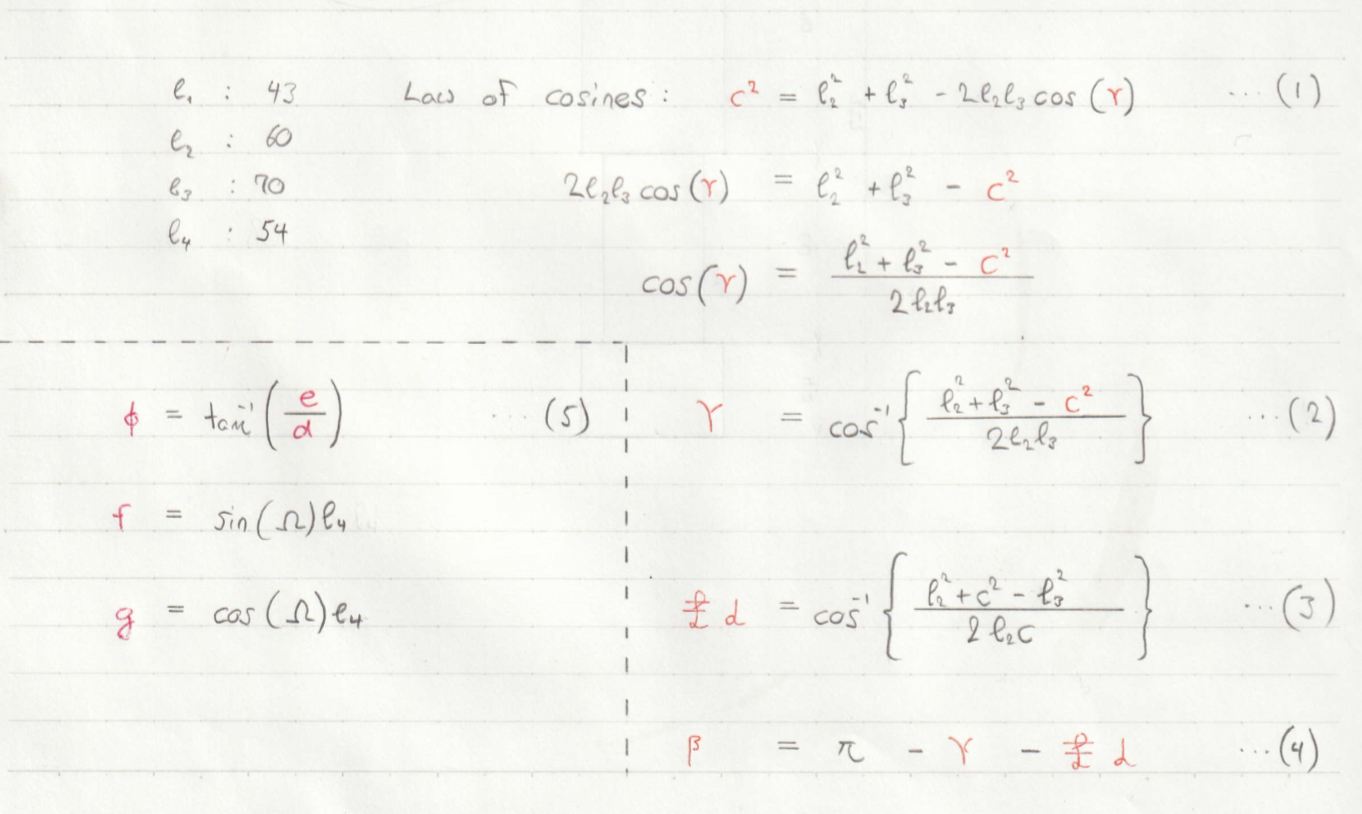 ℓ₁ : 43 Law of cosines : c² = ℓ₂² + ℓ₃² - 2ℓ₂ℓ₃ cos (γ) ... (1)
ℓ₂ : 60
ℓ₃ : 70 2ℓ₂ℓ₃ cos (γ) = ℓ₂² + ℓ₃² - c²
ℓ₄ : 54
cos(γ) = (ℓ₂² + ℓ₃² - c²) / 2ℓ₂ℓ₃
ϕ = tan⁻¹ (e/d) ... (5)
f = sin(Ω)ℓ₄
g = cos(Ω)ℓ₄
γ = cos⁻¹ { (ℓ₂² + ℓ₃² - c²) / 2ℓ₂ℓ₃ } ... (2)
α = cos⁻¹ { (ℓ₂² + c² - ℓ₃²) / 2ℓ₂c } ... (3)
β = π - γ - α ... (4)